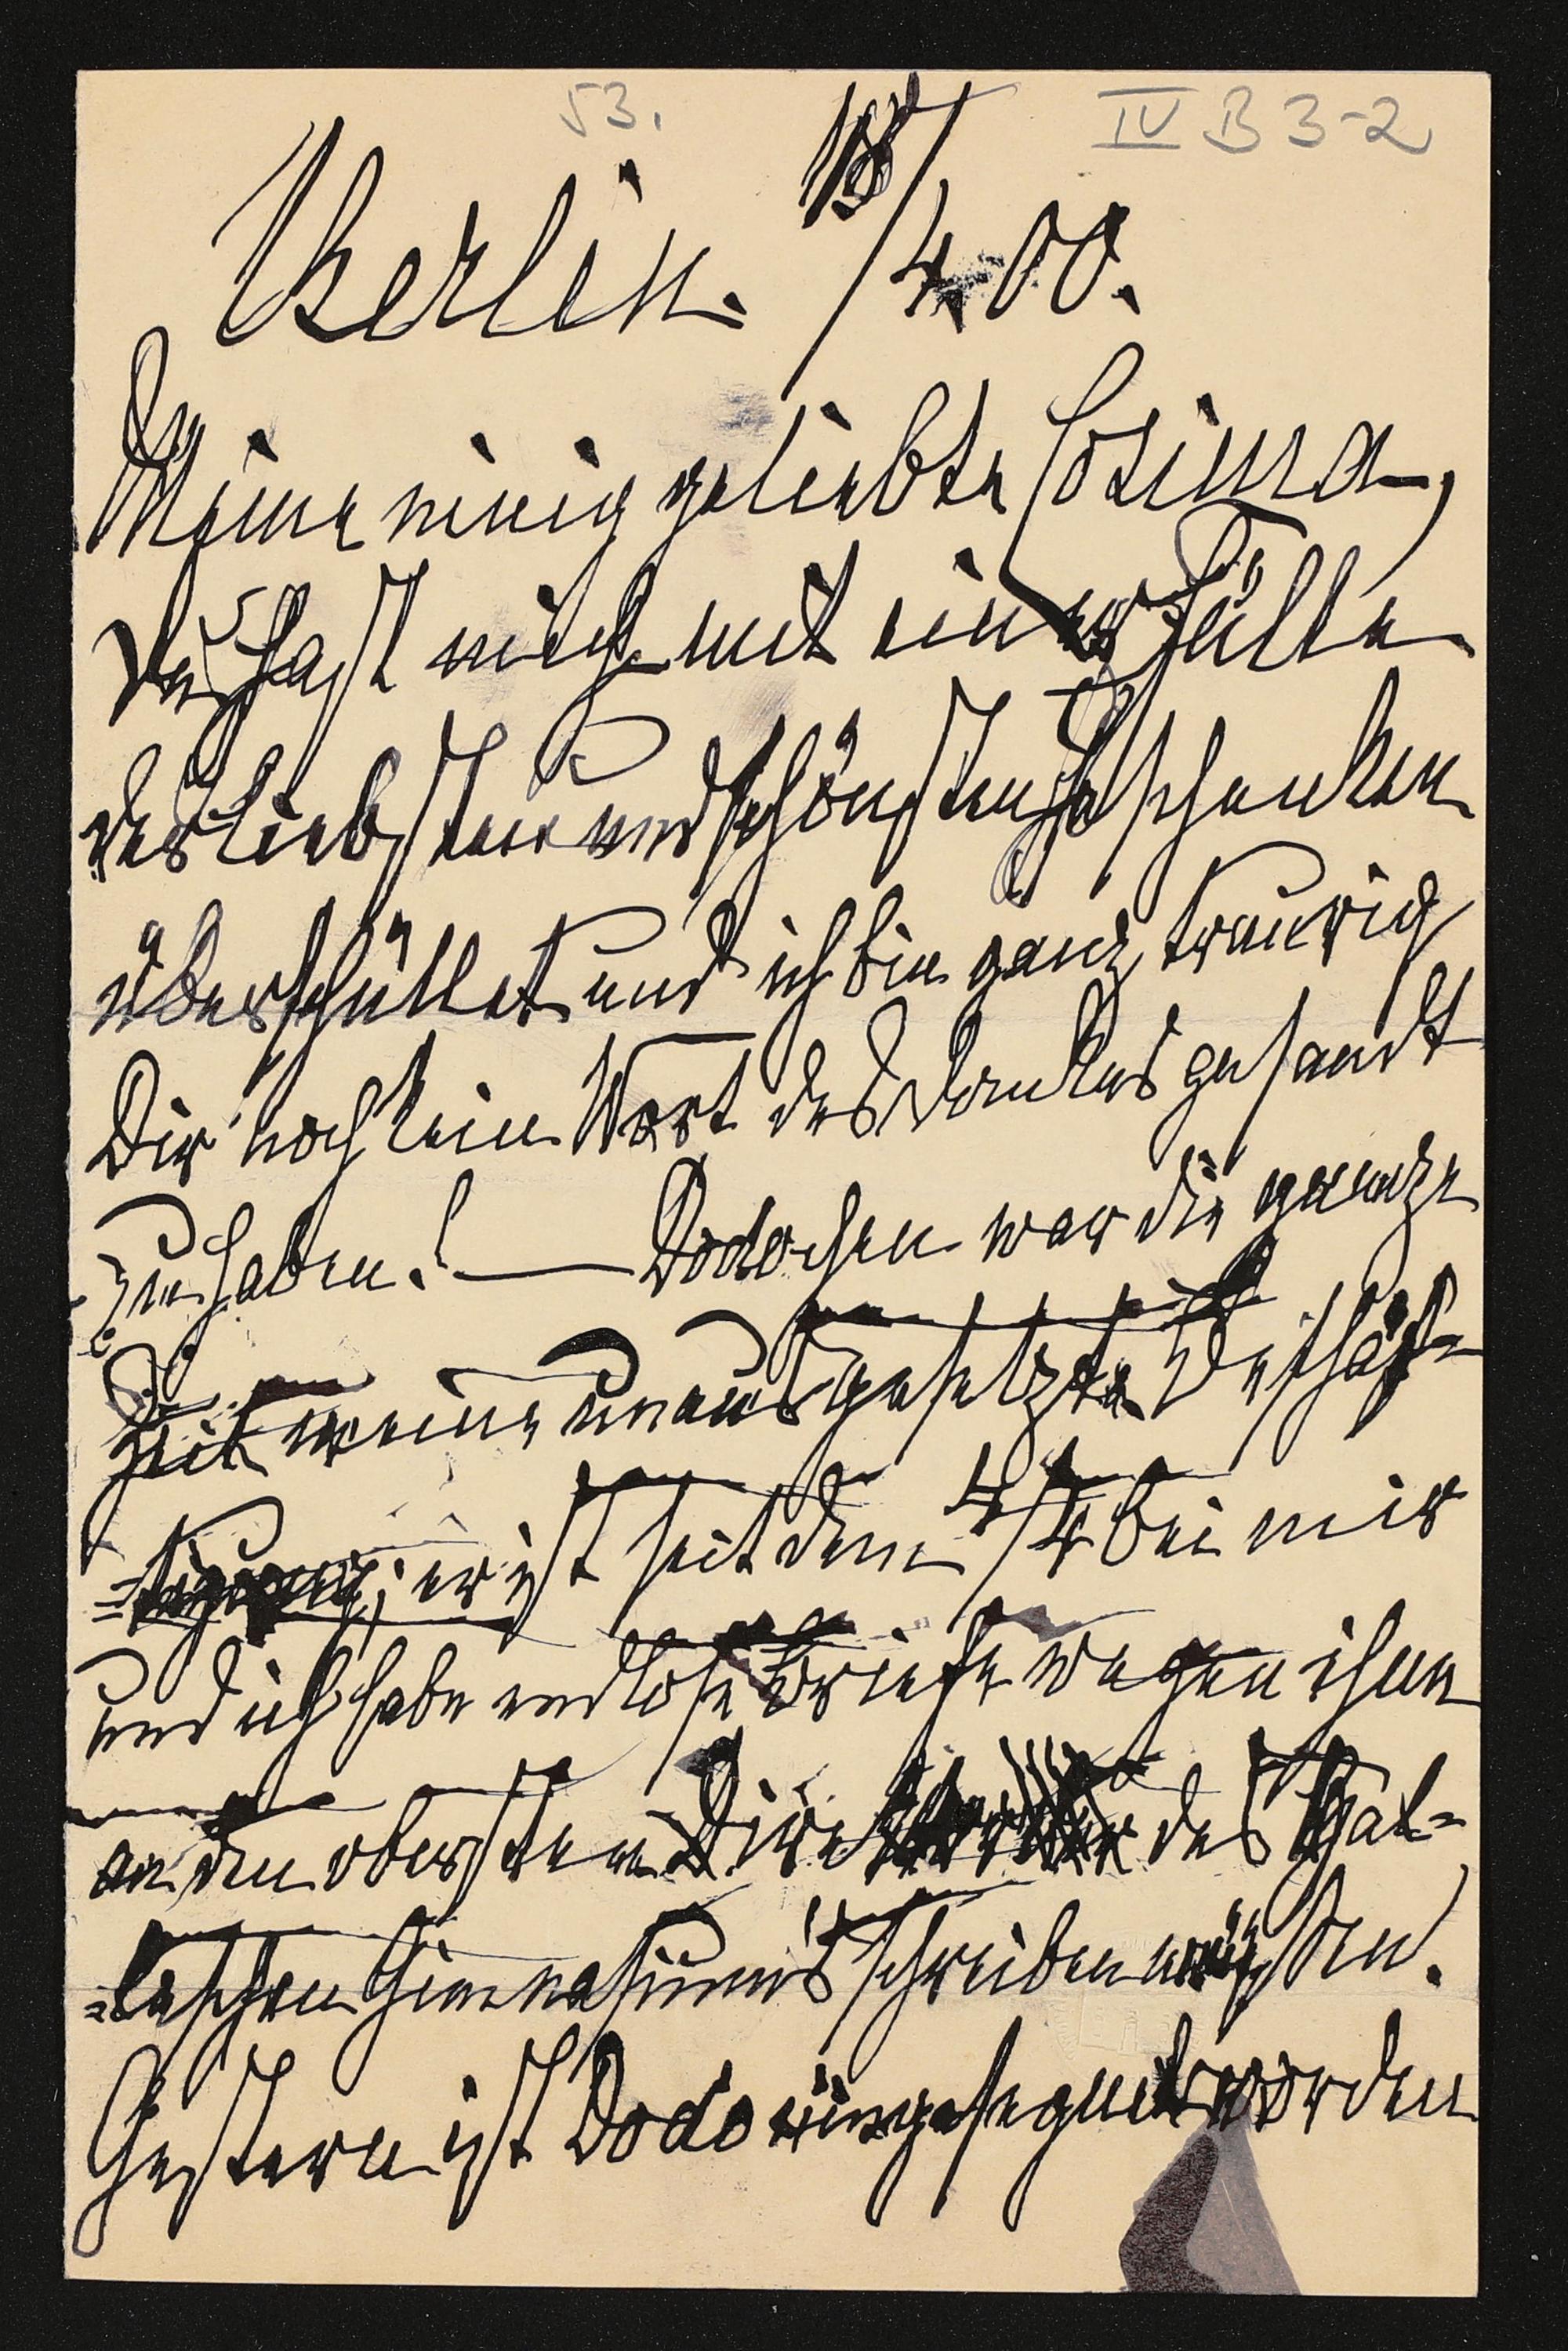 53. IV B 3-2
Berlin. 18/4.00.
Meine innig geliebte Cosima,
Du hast mich mit einer Fülle
der liebsten und schönsten Geschenken
überschüttet und ich bin ganz traurig
Dir noch kein Wort des Dankes gesandt
zu haben! — Dodochen war die ganze
Zeit meine unausgesetzte Beschäf=
=tigung; er ist seit dem 4/4 bei mir
und ich habe endlose Briefe wegen ihm
an den obersten des
=schen Gimnasiums schreiben müssen.
Gestern ist Dodo eingesegnet worden